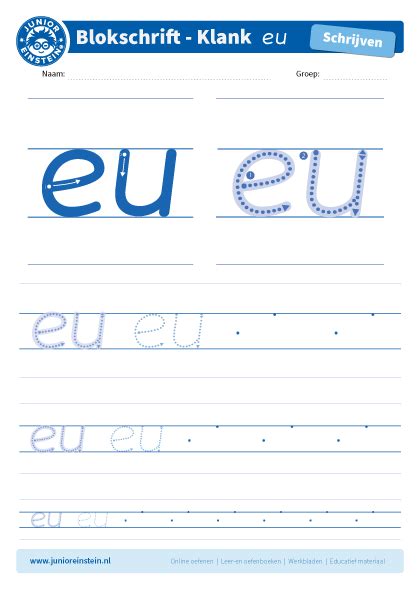 JUNIOR EINSTEIN
Blokschrift - Klank eu
Schrijven
Naam:
Groep:
eu eu
1 2
eu eu
eu eu
eu eu
www.junioreinstein.nl
Online oefenen | Leer-en oefenboeken | Werkbladen | Educatief materiaal